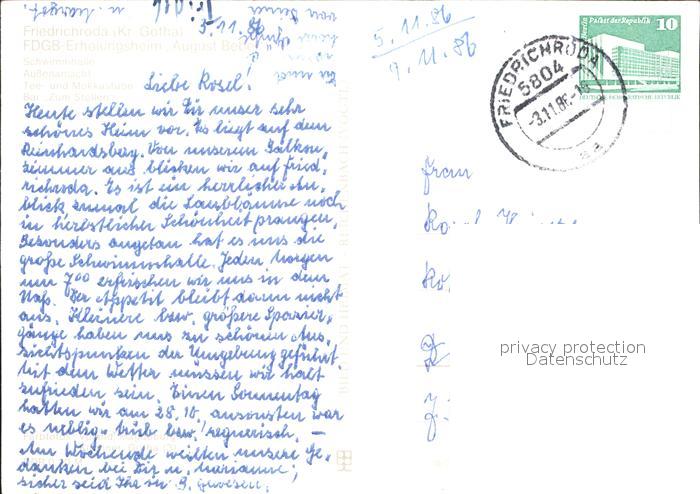 Friedrichroda (Kr. Gotha)
FDGB-Erholungsheim "August Bebel"
Schwimmhalle
Außenansicht
Tee- und Mokkastube
5.11.86
Liebe Rosel!
Heute stellen wir Dir unser sehr
schönes Heim vor. Es liegt auf dem
Reinhardsberg. Von unserem Balkon-
zimmer aus blicken wir auf Fried-
richroda. Es ist ein herrlicher An-
blick zumal die Laubbäume noch
in herbstlicher Schönheit prangen.
Besonders angetan hat es uns die
große Schwimmhalle. Jeden Morgen
um 7⁰⁰ erfrischen wir uns in dem
Naß. Der Appetit bleibt dann nicht
aus. Kleinere bzw. größere Spazier-
gänge haben uns zu schönen Aus-
sichtspunkten der Umgebung geführt.
Mit dem Wetter müssen wir halt
zufrieden sein. Einen Sonnentag
hatten wir am 28.10. ansonsten war
es neblig-trüb bzw. regnerisch. –
Am Wochenende weilten unsere Ge-
danken bei Dir u. Marianne;
sicher seid Ihr in G. gewesen.
5.11.86
9.11.86
Berlin Palast der Republik 10
DEUTSCHE DEMOKRATISCHE REPUBLIK
FRIEDRICHRODA
5804
-3.11.86
Frau
privacy protection
Datenschutz